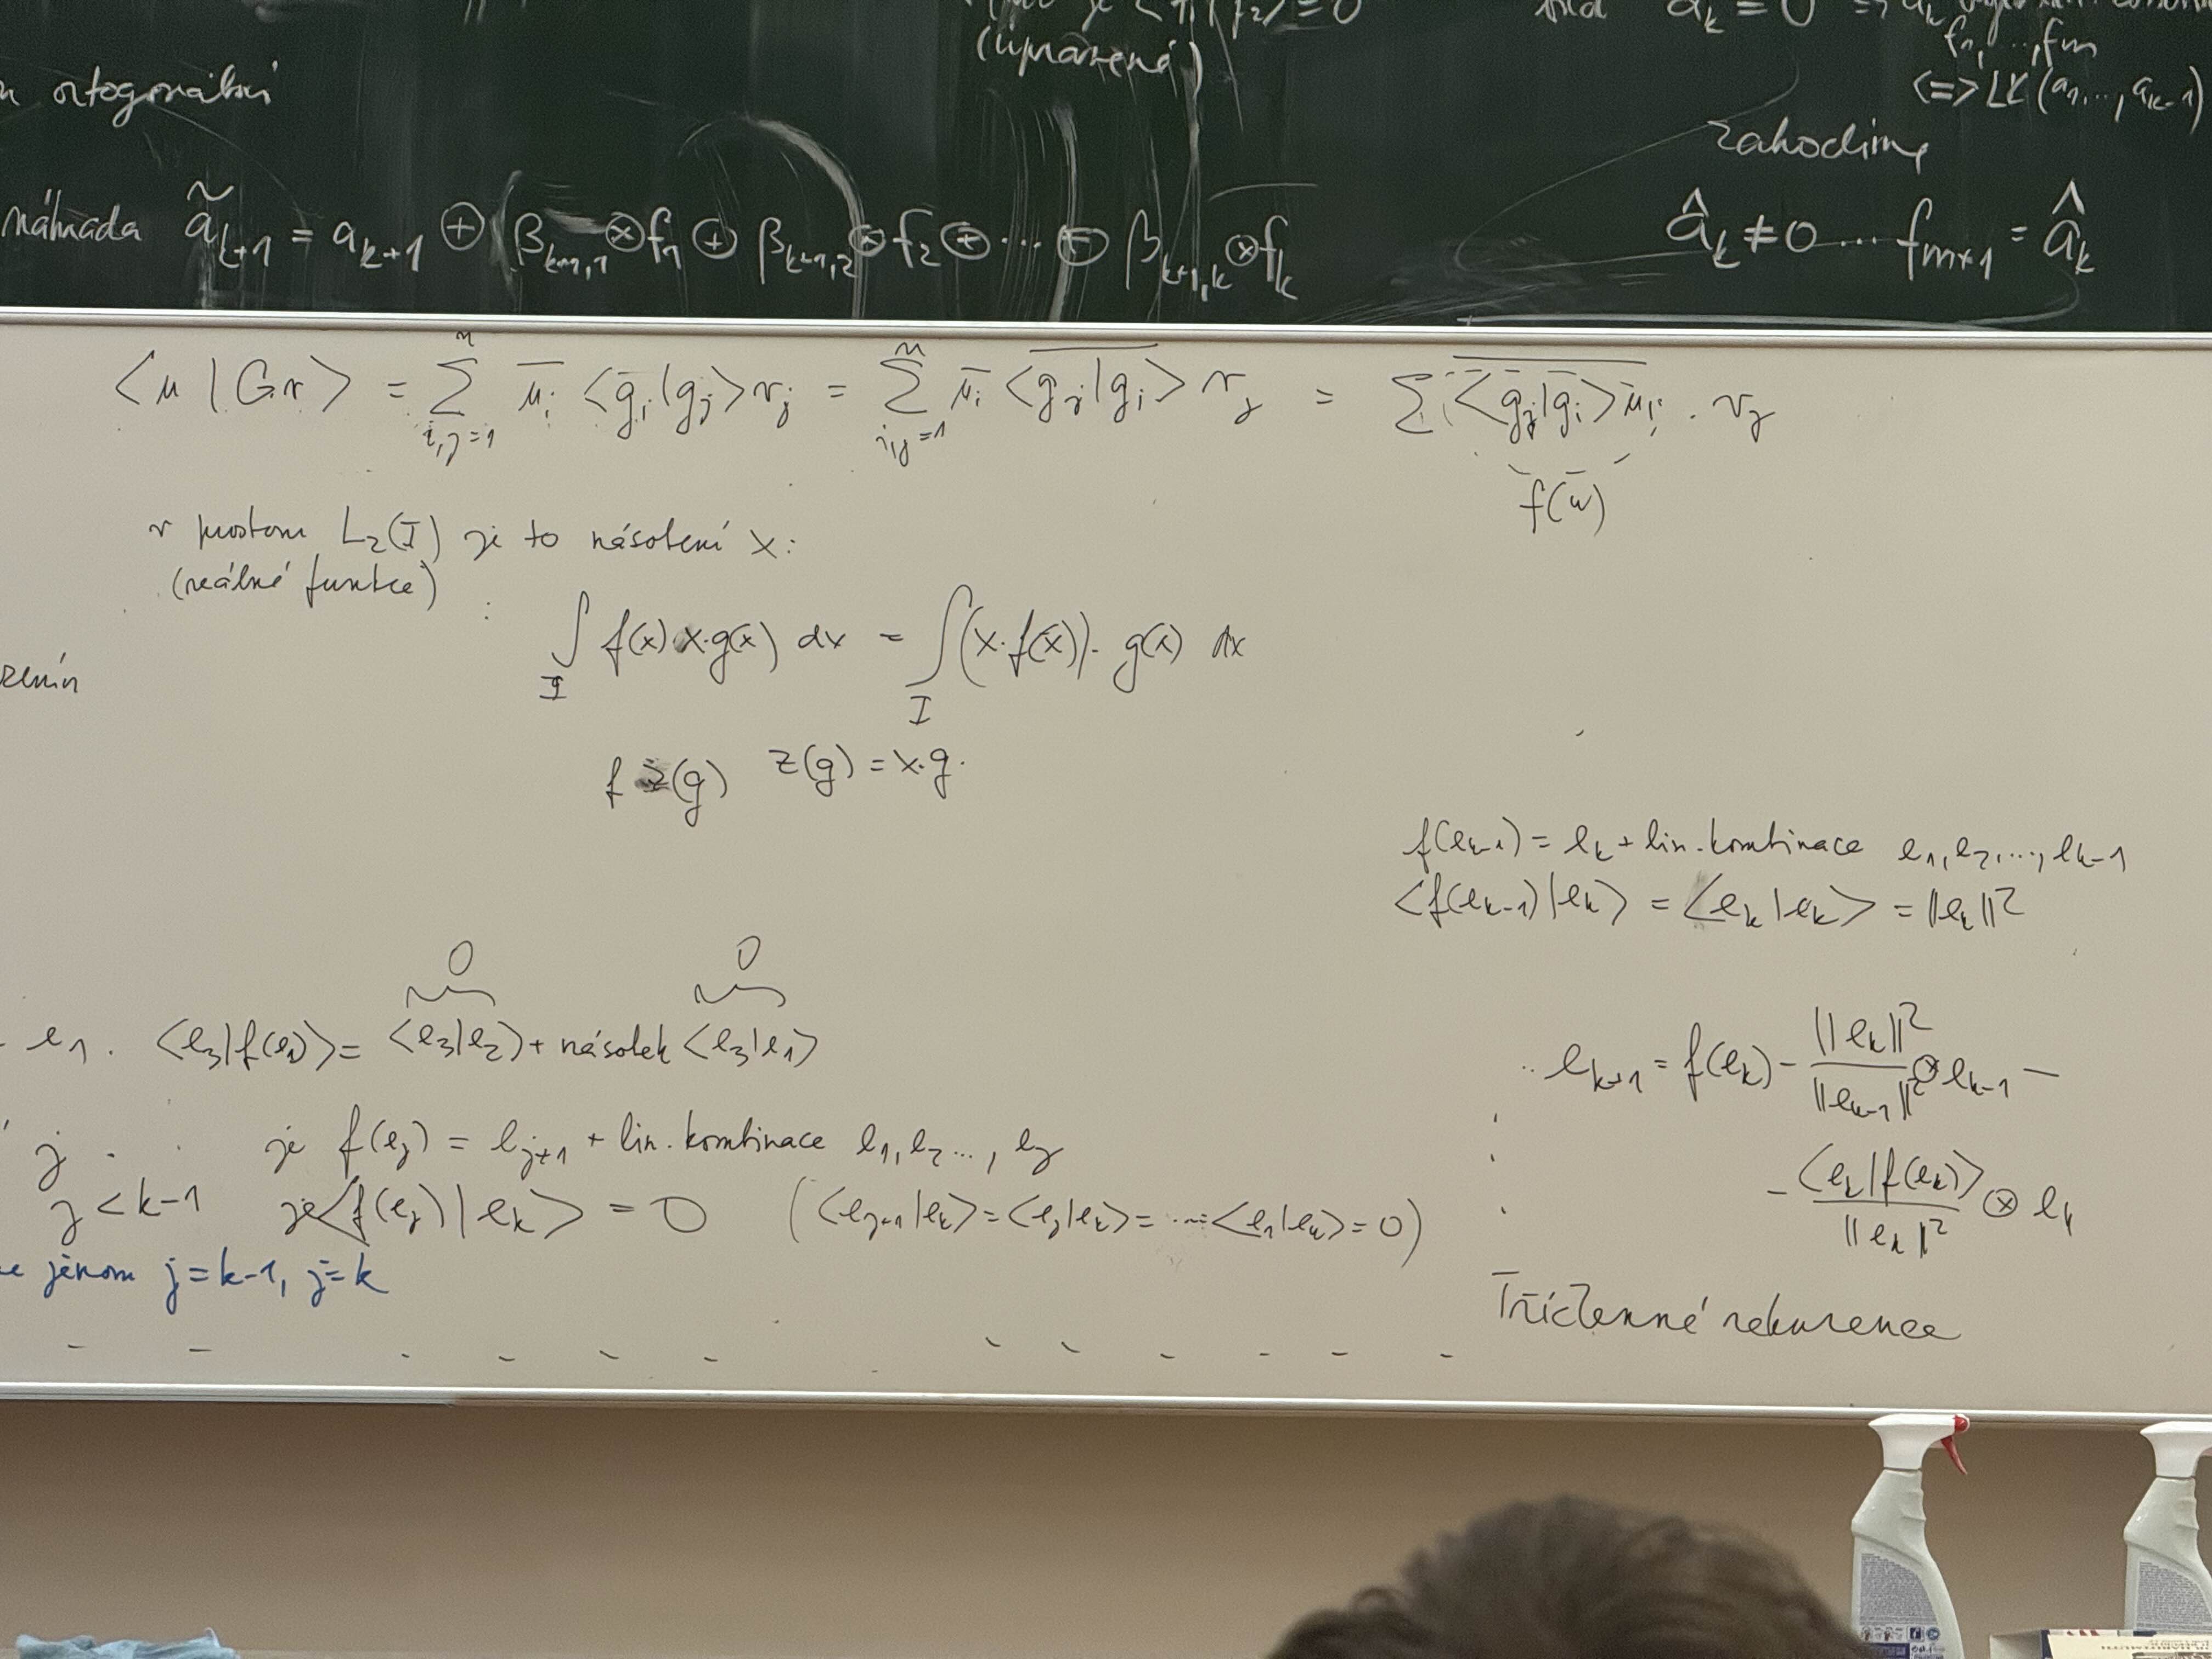 (upravené)
f₁, ..., fₘ
<=> LK (a₁, ..., aₖ₋₁)
ortogonální
zahodíme
náhrada ãₖ₊₁ = aₖ₊₁ ⊕ βₖ₊₁,₁ ⊗ f₁ ⊕ βₖ₊₁,₂ ⊗ f₂ ⊕ ... ⊕ βₖ₊₁,ₖ ⊗ fₖ
âₖ ≠ 0 ... fₘ₊₁ = âₖ
<u | Gv> = \sum_{i,j=1}^{n} \overline{u_i} <g_i|g_j> v_j = \sum_{i,j=1}^{n} \overline{u_i} \overline{<g_j|g_i>} v_j = \sum \overline{<g_j|g_i> u_i} . v_j
f(u)
v prostoru L₂(I) je to násobení x:
(reálné funkce)
\int_I f(x) x·g(x) dx = \int_I (x·f(x))· g(x) dx
f z(g) z(g) = x·g.
f(eₖ₋₁) = eₖ + lin. kombinace e₁, e₂, ..., eₖ₋₁
<f(eₖ₋₁)|eₖ> = <eₖ|eₖ> = ||eₖ||²
0 0
e₁. <e₃|f(e₁)> = <e₃|e₂> + násobek <e₃|e₁>
.. eₖ₊₁ = f(eₖ) - \frac{||eₖ||²}{||eₖ₋₁||²} ⊗ eₖ₋₁ -
j je f(eⱼ) = eⱼ₊₁ + lin. kombinace e₁, e₂ ..., eⱼ
- \frac{<eₖ|f(eₖ)>}{||eₖ||²} ⊗ eₖ
j < k-1 je <f(eⱼ)|eₖ> = 0 (<eⱼ₊₁|eₖ> = <eⱼ|eₖ> = ... = <e₁|eₖ> = 0)
jenom j = k-1, j = k
Tříčlenné rekurence